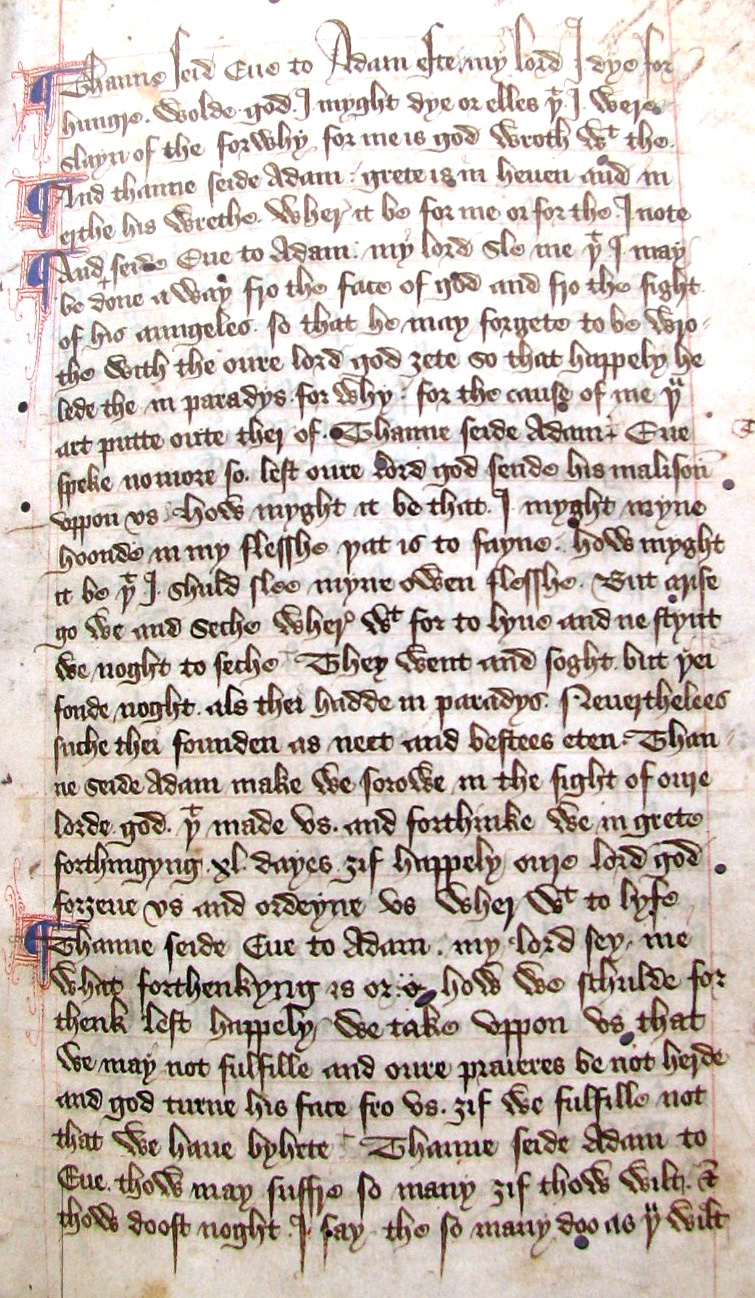 Thanne seid Eue to Adam este my lord I dye for
hungre. wolde god I myght dye or elles þͭ I were
slayn of the forwhy for me is god wroth wͭ the.
And thanne seide Adam: grete is in heuen and in
erthe his wrethe wher it be for me or for the I note
And seide Eue to Adam: my lord sle me þͭ I may
be done a way fro the face of god and fro the sight
of his aungeles. so that he may forgete to be wro-
the with the oure lord god ȝete so that happely he
lede the in paradys. for why: for the cause of me þu
art putte oute ther of. Thanne seide Adam Eue
speke nomore so. lest oure lord god sende his malison
vppon vs. How myght it be that. I myght myne
hoonde in my flesshe þat is to sayne. how myght
it be þͭ I. shuld slee myne owen flesshe. But arise
go we and seche wher wͭ for to lyue and ne stynt
we noght to seche They went and soght. but þei
fonde noght. als thei hadde in paradys. Neuerthelees
suche thei founden as neet and bestees eten. Than
ne seide Adam make we sorowe in the sight of oure
lorde god. þͭ made vs. and forthinke we in grete
forthingyng. xl. dayes. ȝif happely oure lord god
forȝeue vs and ordeyne vs wher wͭ to lyfe
Thanne seide Eue to Adam. my lord sey me
what forthenkyng is or how we schulde for
thenk lest happely we take vppon vs that
we may not fulfille and oure praieres be not herde
and god turne his face fro vs. ȝif we fulfille not
that we haue byhete Thanne seide Adam to
Eue. thow may suffre so many ȝif thow wilt.
thow doost noght. I say the so many doo as þu wilt